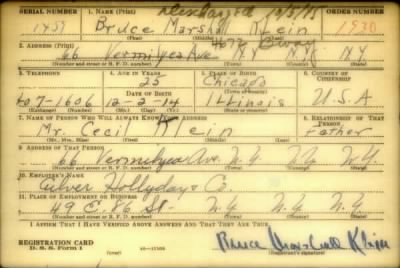 SERIAL NUMBER 1. NAME (Print) ORDER NUMBER
1459 Bruce Marshall Klein 1930
(First) (Middle) (Last)
2. ADDRESS (Print) 4077 Bway
66 Vermilyea Ave N.Y. N.Y. N.Y.
(Number and street or R. F. D. number) (Town) (County) (State)
3. TELEPHONE 4. AGE IN YEARS 5. PLACE OF BIRTH 6. COUNTRY OF CITIZENSHIP
25 Chicago
LO7-1606 DATE OF BIRTH (Town or county)
12-2-14 Illinois U.S.A
(Exchange) (Number) (Mo.) (Day) (Yr.) (State or country)
7. NAME OF PERSON WHO WILL ALWAYS KNOW YOUR ADDRESS 8. RELATIONSHIP OF THAT PERSON
Mr. Cecil Klein Father
(Mr., Mrs., Miss) (First) (Middle) (Last)
9. ADDRESS OF THAT PERSON
66 Vermilyea Ave. N.Y. N.Y. N.Y.
(Number and street or R. F. D. number) (Town) (County) (State)
10. EMPLOYER'S NAME
Hollyday & Co.
11. PLACE OF EMPLOYMENT OR BUSINESS
49 E. 86 St- N.Y. N.Y. N.Y.
(Number and street or R. F. D. number) (Town) (County) (State)
I AFFIRM THAT I HAVE VERIFIED ABOVE ANSWERS AND THAT THEY ARE TRUE.
REGISTRATION CARD
D. S. S. Form 1 (over) Bruce Marshall Klein
(Registrant's signature)